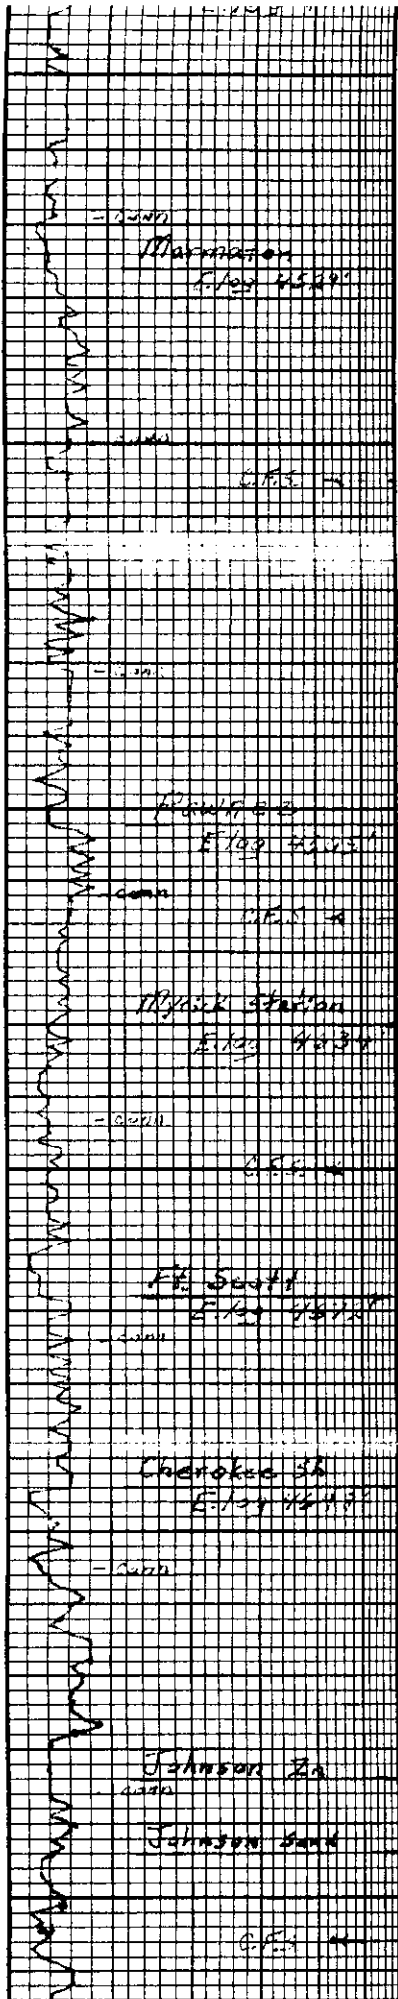 conn
Marmaton
E.log 4529'
conn
C.F.S.
conn
Pawnee
E.log
conn
C.F.S.
Myrick Station
E.log
conn
C.F.S.
Ft. Scott
E.log
conn
Cherokee Sh
E.log
conn
Johnson Zn
conn
Johnson Sand
C.F.S.